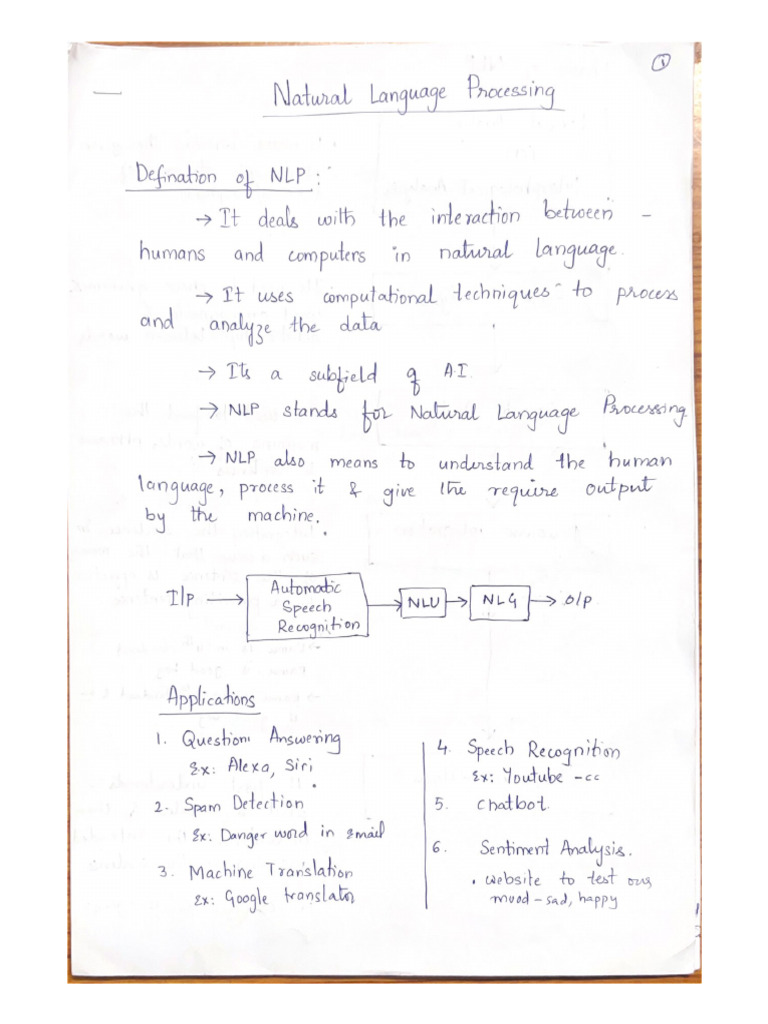 1
Natural Language Processing
Defination of NLP :
→ It deals with the interaction between -
humans and computers in natural language.
→ It uses computational techniques to process
and analyze the data
→ Its a subfield of A.I.
→ NLP stands for Natural Language Processing.
→ NLP also means to understand the human
language, process it & give the require output
by the machine.
I/P → Automatic Speech Recognition → NLU → NLG → O/P
Applications
1. Question Answering
Ex: Alexa, Siri
2. Spam Detection
Ex: Danger word in email
3. Machine Translation
Ex: Google translator
4. Speech Recognition
Ex: Youtube - cc
5. chatbot
6. Sentiment Analysis.
. website to test our
mood - sad, happy